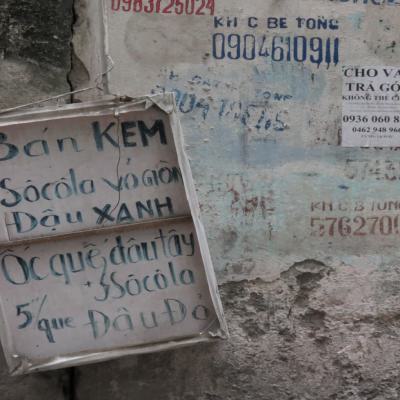 0983725024
KH C BE TONG
0904610911
CHO VA
TRẢ GÓ
KHÔNG THẾ C
0936 060 8
0462 948 96
KH C B TONG
5762700
Bán KEM
Sôcôla VỎ GIÒN
Đậu XANH
Ốc quế dâu tây
Sôcôla
5n/que Đậu Đỏ